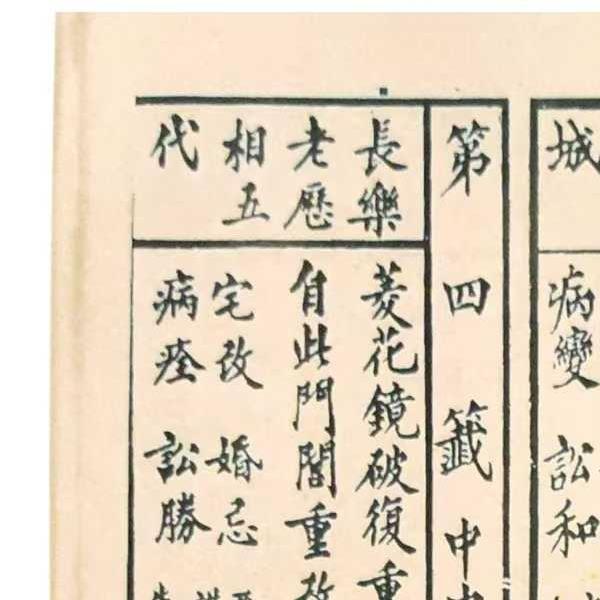 城
病變 訟和
第四籤 中
長樂
老歷
相五
代
菱花鏡破復重
自此門閭重改
宅改 婚忌
病痊 訟勝